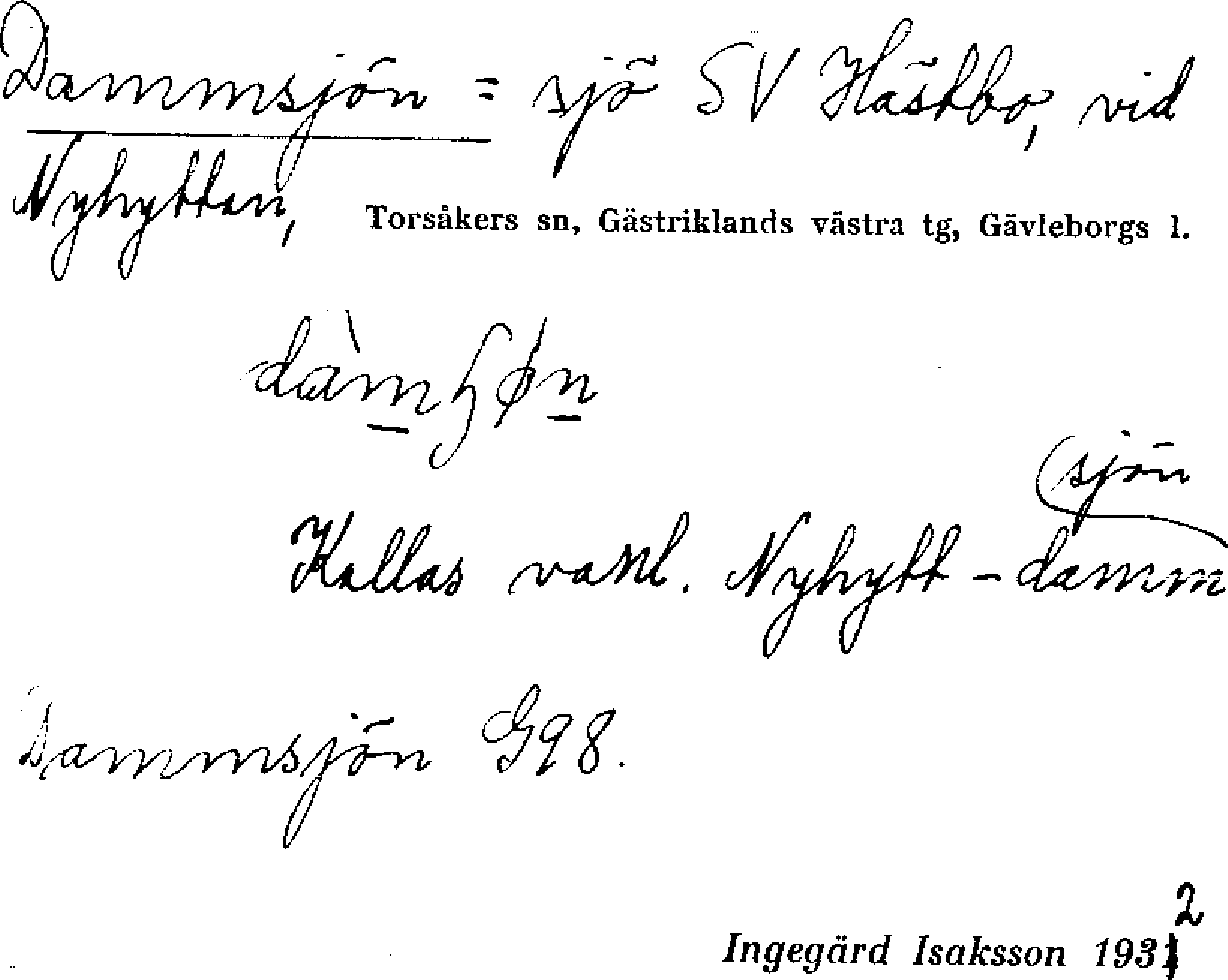 Dammsjön = sjö SV Hästbo, vid
Nyhyttan, Torsåkers sn, Gästriklands västra tg, Gävleborgs l.
Kallas vanl. Nyhytt-damm
sjön
Dammsjön G98.
Ingegärd Isaksson 1932